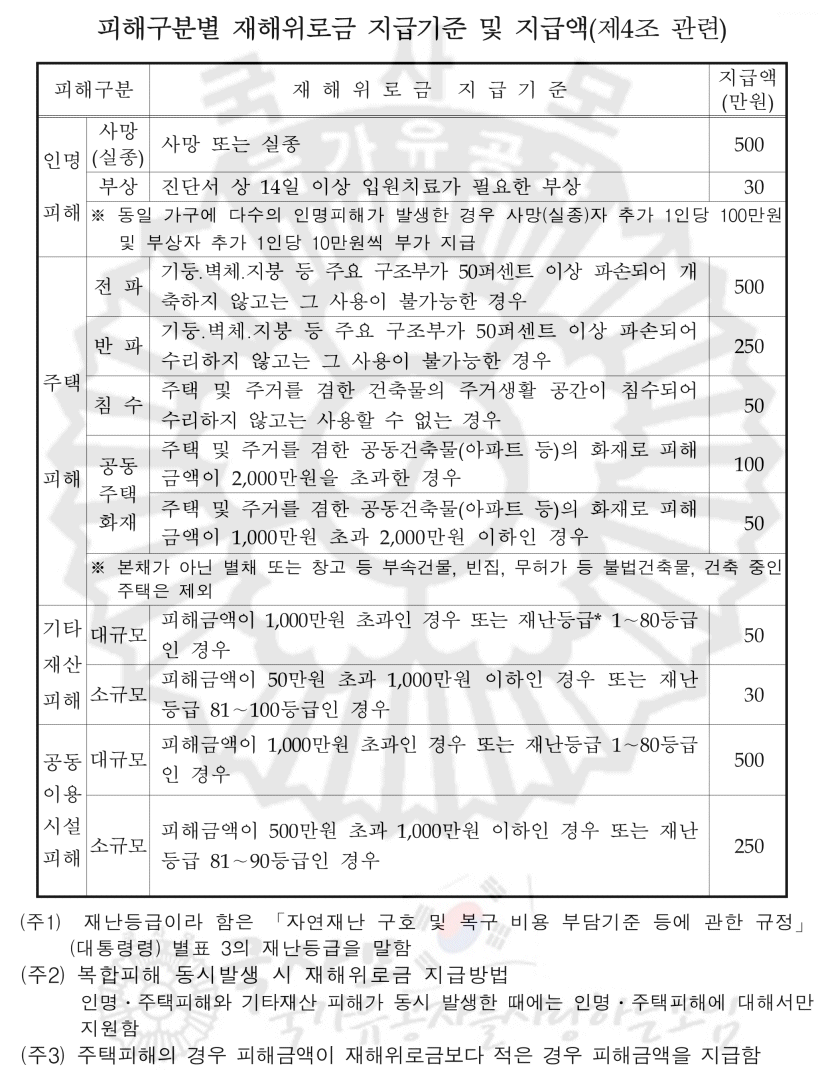 피해구분별 재해위로금 지급기준 및 지급액(제4조 관련)
피해구분 재 해 위 로 금 지 급 기 준 지급액
(만원)
인명
피해
사망
(실종) 사망 또는 실종 500
부상 진단서 상 14일 이상 입원치료가 필요한 부상 30
※ 동일 가구에 다수의 인명피해가 발생한 경우 사망(실종)자 추가 1인당 100만원
및 부상자 추가 1인당 10만원씩 부가 지급
주택
피해
전 파 기둥.벽체.지붕 등 주요 구조부가 50퍼센트 이상 파손되어 개
축하지 않고는 그 사용이 불가능한 경우 500
반 파 기둥.벽체.지붕 등 주요 구조부가 50퍼센트 이상 파손되어
수리하지 않고는 그 사용이 불가능한 경우 250
침 수 주택 및 주거를 겸한 건축물의 주거생활 공간이 침수되어
수리하지 않고는 사용할 수 없는 경우 50
공동
주택
화재
주택 및 주거를 겸한 공동건축물(아파트 등)의 화재로 피해
금액이 2,000만원을 초과한 경우 100
주택 및 주거를 겸한 공동건축물(아파트 등)의 화재로 피해
금액이 1,000만원 초과 2,000만원 이하인 경우 50
※ 본채가 아닌 별채 또는 창고 등 부속건물, 빈집, 무허가 등 불법건축물, 건축 중인
주택은 제외
기타
재산
피해
대규모 피해금액이 1,000만원 초과인 경우 또는 재난등급* 1~80등급
인 경우 50
소규모 피해금액이 50만원 초과 1,000만원 이하인 경우 또는 재난
등급 81~100등급인 경우 30
공동
이용
시설
피해
대규모 피해금액이 1,000만원 초과인 경우 또는 재난등급 1~80등급
인 경우 500
소규모 피해금액이 500만원 초과 1,000만원 이하인 경우 또는 재난
등급 81~90등급인 경우 250
(주1) 재난등급이라 함은 「자연재난 구호 및 복구 비용 부담기준 등에 관한 규정」
(대통령령) 별표 3의 재난등급을 말함
(주2) 복합피해 동시발생 시 재해위로금 지급방법
인명·주택피해와 기타재산 피해가 동시 발생한 때에는 인명·주택피해에 대해서만
지원함
(주3) 주택피해의 경우 피해금액이 재해위로금보다 적은 경우 피해금액을 지급함
국사모
국가유공자
국사모
국가유공자를사랑하는모임